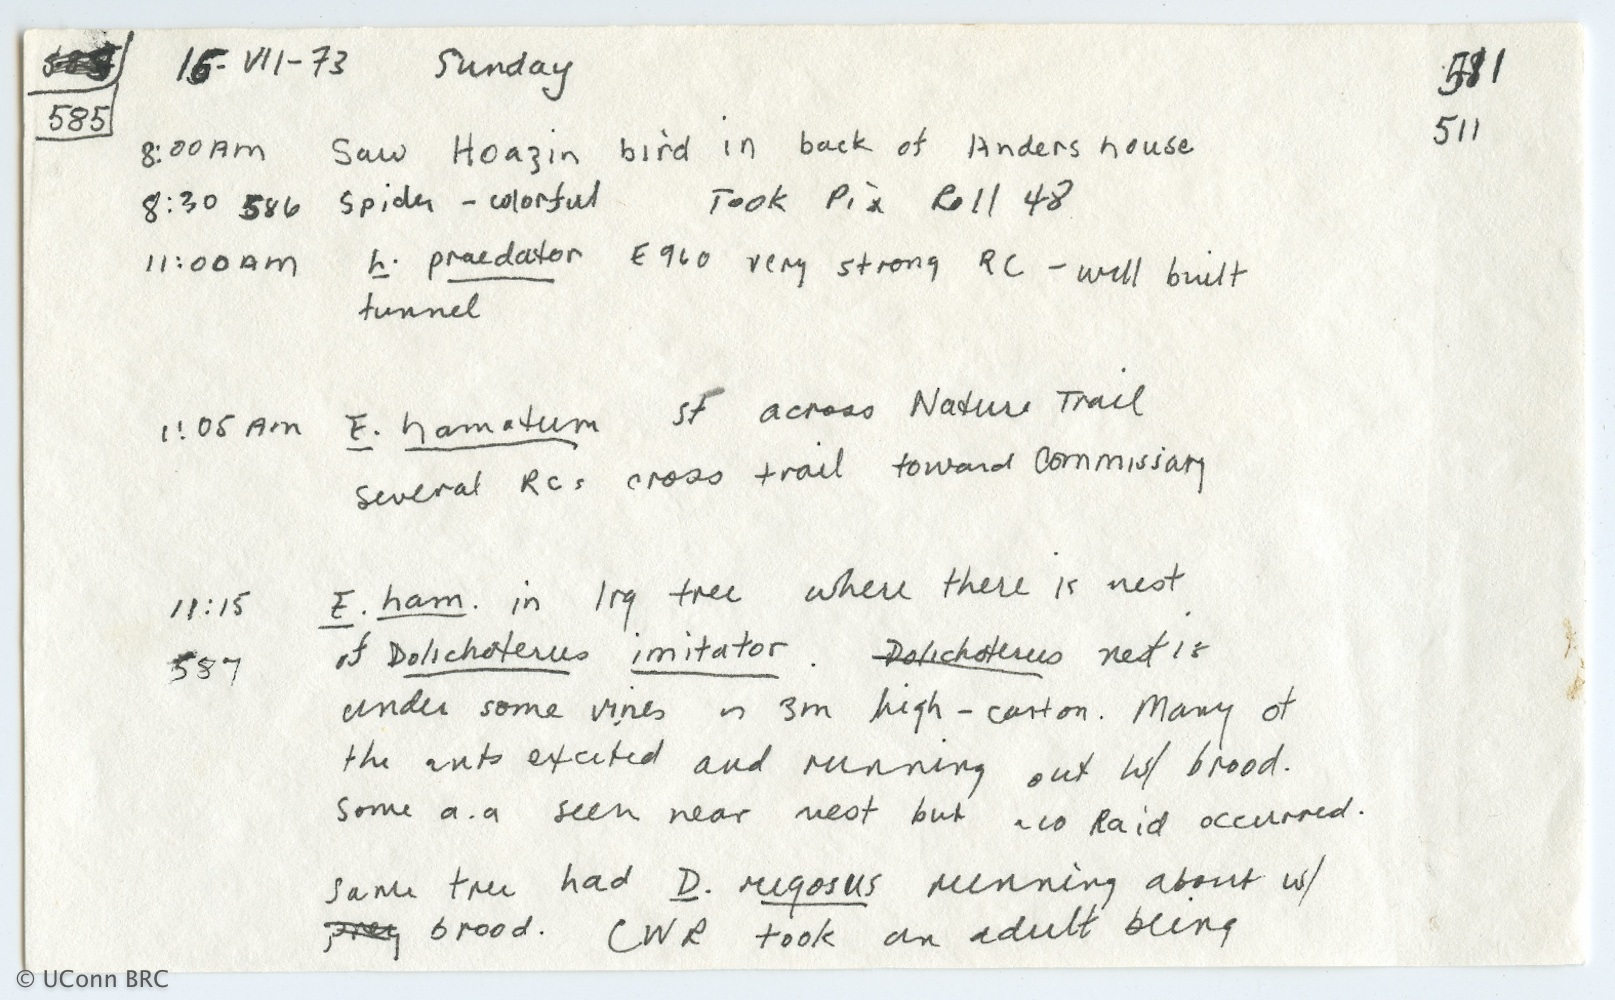 585
16-VII-73 Sunday
511
8:00AM Saw Hoazin bird in back of Anders house
8:30 586 Spider - colorful Took Pix Roll 48
11:00AM L. praedator E960 very strong RC - well built
tunnel
11:05 Am E. hamatum SF across Nature Trail
several RCs cross trail toward Commissary
11:15 E. ham. in lrg tree where there is nest
587 of Dolichoterus imitator. Dolichoterus nest is
under some vines ~ 3m high - carton. Many of
the ants excited and running out w/ brood.
Some a.a seen near nest but no Raid occurred.
Same tree had D. rugosus running about w/
prey brood. CWR took an adult being
© UConn BRC